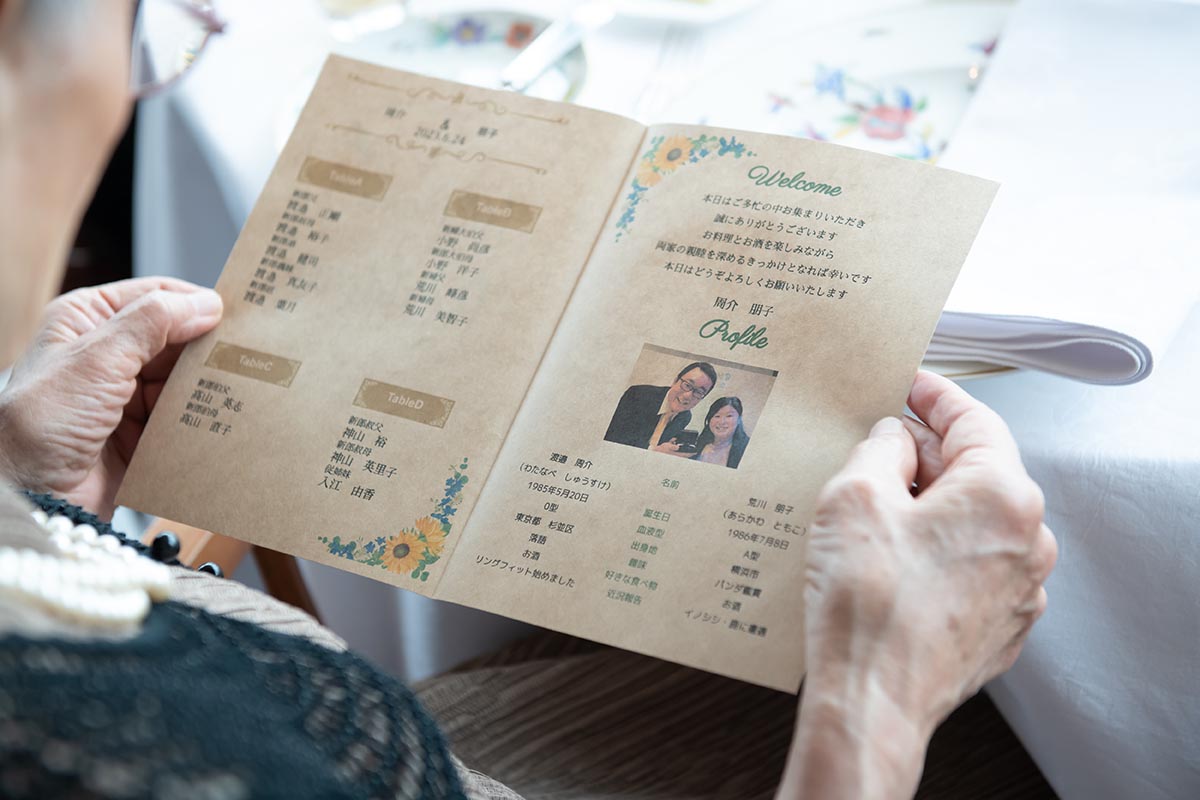 周介 & 朋子
2023.6.24
TableA
新郎父
渡邉 正剛
新郎叔母
渡邉 裕子
新郎弟
渡邉 健司
新郎義妹
渡邉 真友子
新郎姪
渡邉 菜月
TableB
新婦大伯父
小野 尚彦
新郎大伯母
小野 洋子
新婦父
荒川 峰彦
新婦母
荒川 美智子
TableC
新郎伯父
高山 英志
新郎伯母
高山 直子
TableD
新郎叔父
神山 裕
新郎叔母
神山 英里子
従姉妹
入江 由香
Welcome
本日はご多忙の中お集まりいただき
誠にありがとうございます
お料理とお酒を楽しみながら
両家の親睦を深めるきっかけとなれば幸いです
本日はどうぞよろしくお願いいたします
周介 朋子
Profile
渡邉 周介 名前 荒川 朋子
(わたなべ しゅうすけ) (あらかわ ともこ)
1985年5月20日 誕生日 1986年7月8日
O型 血液型 A型
東京都 杉並区 出身地 横浜市
落語 趣味 パンダ鑑賞
お酒 好きな食べ物 お酒
リングフィット始めました 近況報告 イノシシ・鹿に遭遇